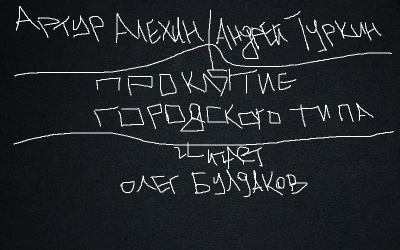 Артур Алехин/Андрей Туркин
ПРОКЛЯТИЕ
ГОРОДСКОГО ТИПА
Читает
ОЛЕГ БУЛДАКОВ